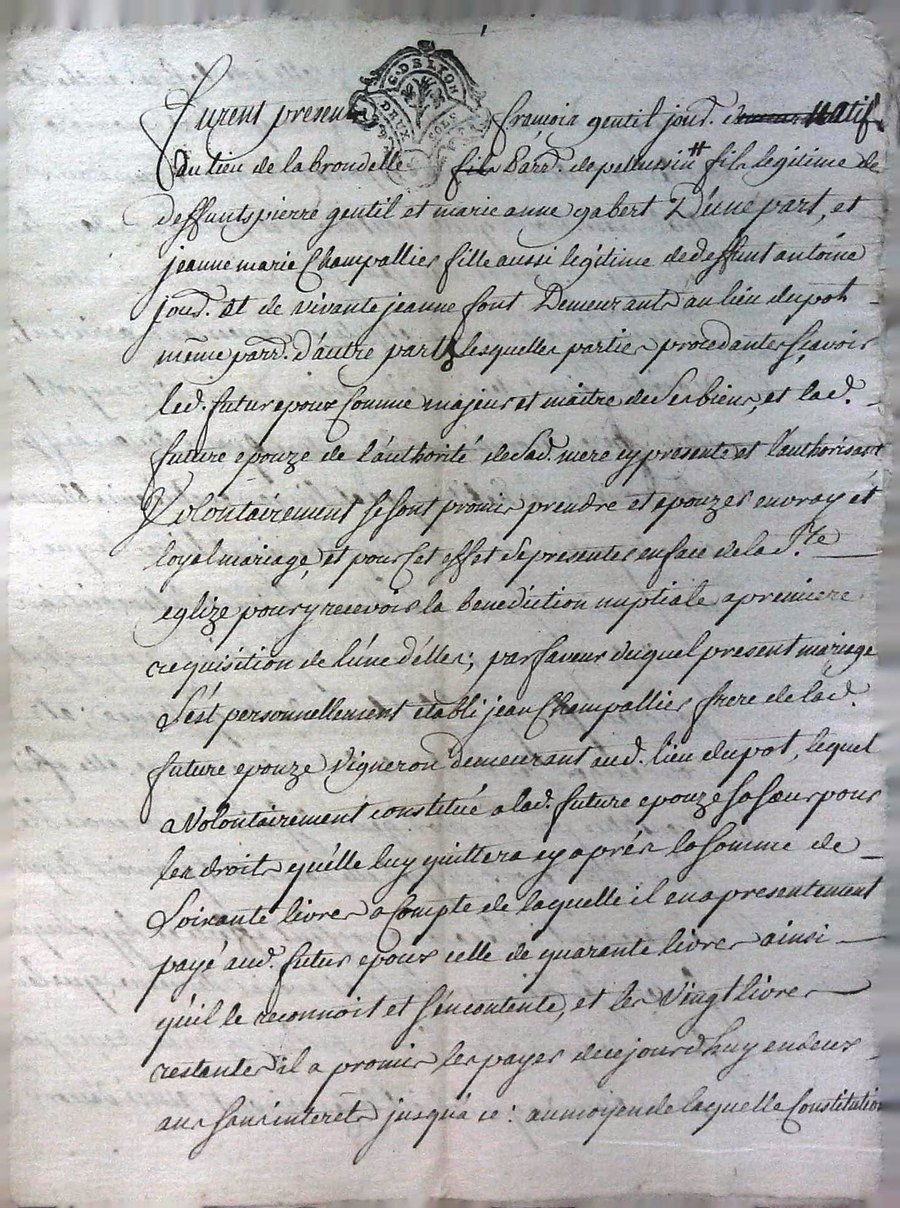 G. DE LYON
DEUX SOLS
furent presents françois gentil jour.d ~~demeur~~ natif
du lieu de la brondelle ~~fils~~ Parr.e de pelussin # fils legitime de
deffunts pierre gentil et marie anne gabert D'une part, et
jeanne marie Champallier fille aussi legitime de deffunt antoine
jour.d et de vivante jeanne font Demeurants au lieu du pot –
même parr.e d'autre part, lesquelles parties procedantes sçavoir
led. futur epoux Comme majeur et maitre de ses biens, et lad. –
future epouze de l'authorité de sad. mere cy presente et l'authorisant
Volontairement se sont promis prendre et epouzer en vray et
loyal mariage, et pour Cet effet se presenter en face de lad. ste
eglize pour y recevoir la benediction nuptiale a premiere
requisition de l'une d'elles; par faveur duquel present mariage
s'est personnellement etabli jean Champallier frere de lad.
future epouze Vigneron demeurant aud. lieu du pot, lequel
a Volontairement constitué a lad. future epouze sa sœur pour
les droits qu'elle luy quittera cy après la somme de –
Soixante livres a Compte de laquelle il en a presentement
payé aud. futur epoux celle de quarante livres ainsi –
qu'il le reconnoit et s'en contente, et les Vingt livres –
restantes il a promis les payer de ce jourd'huy en deux –
ans sans interets jusqu'a ce: au moyen de laquelle Constitution